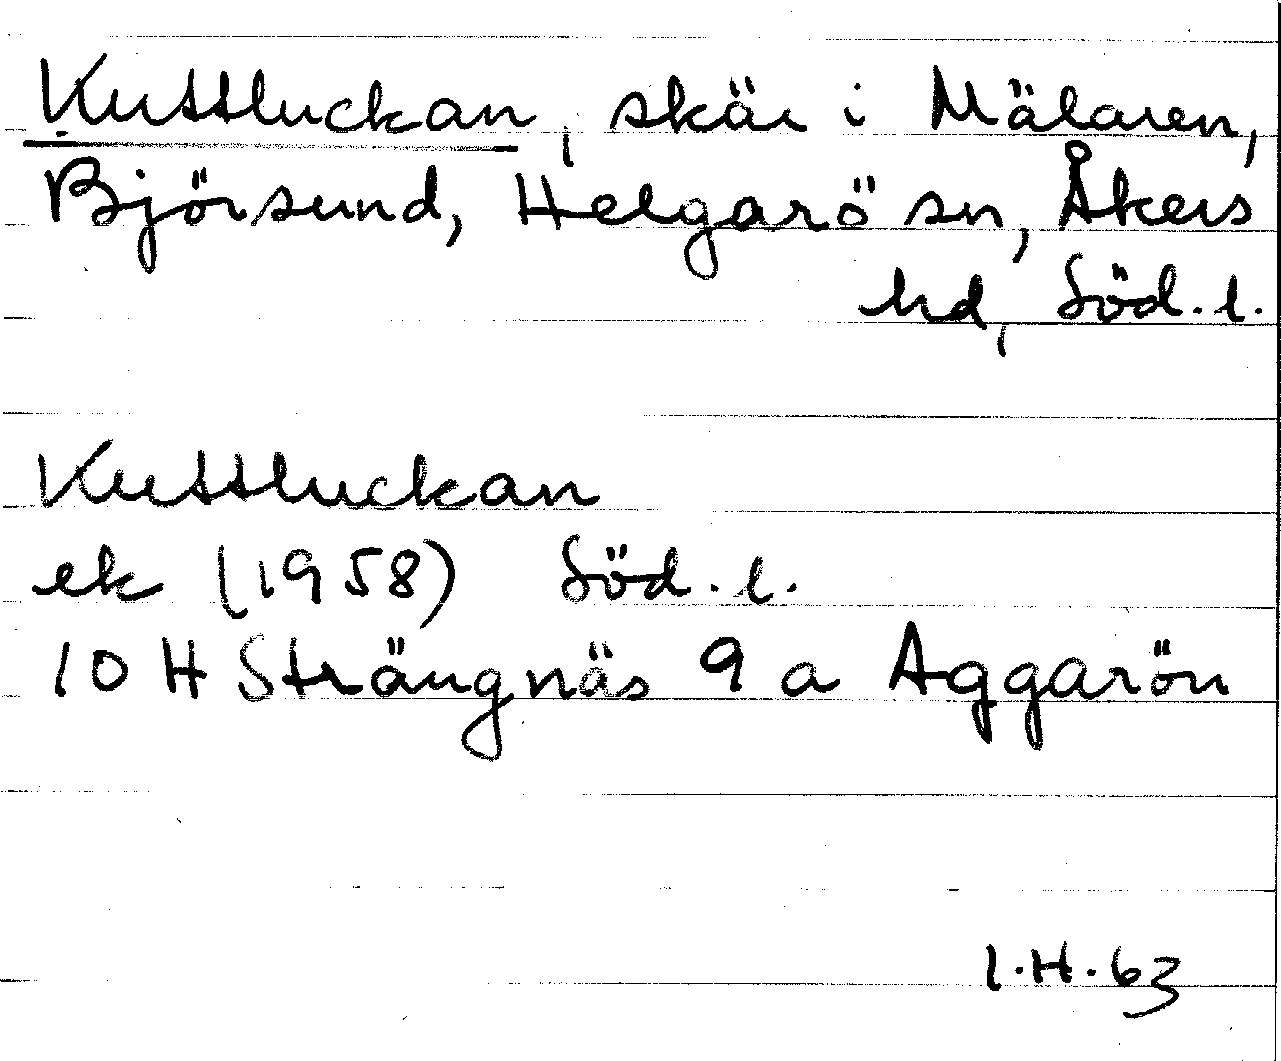 Kuttluckan, skär i Mälaren,
Björsund, Helgarö sn, Åkers
hd, Söd. l.
Kuttluckan
ek (1958) Söd. l.
10 H Strängnäs 9 a Aggarön
I.H. 63